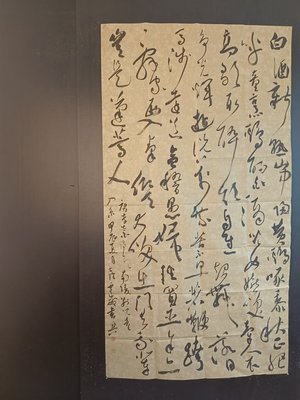 白酒新熟山中归黄鸡啄黍秋正肥
呼童烹鸡酌白酒儿女嬉笑牵人衣
高歌取醉欲自慰起舞落日
争光辉游说万乘苦不早著鞭跨
马涉远道会稽愚妇轻买臣余亦
辞家西入秦仰天大笑出门去我辈
岂是蓬蒿人
南陵别儿童
入京甲辰五月